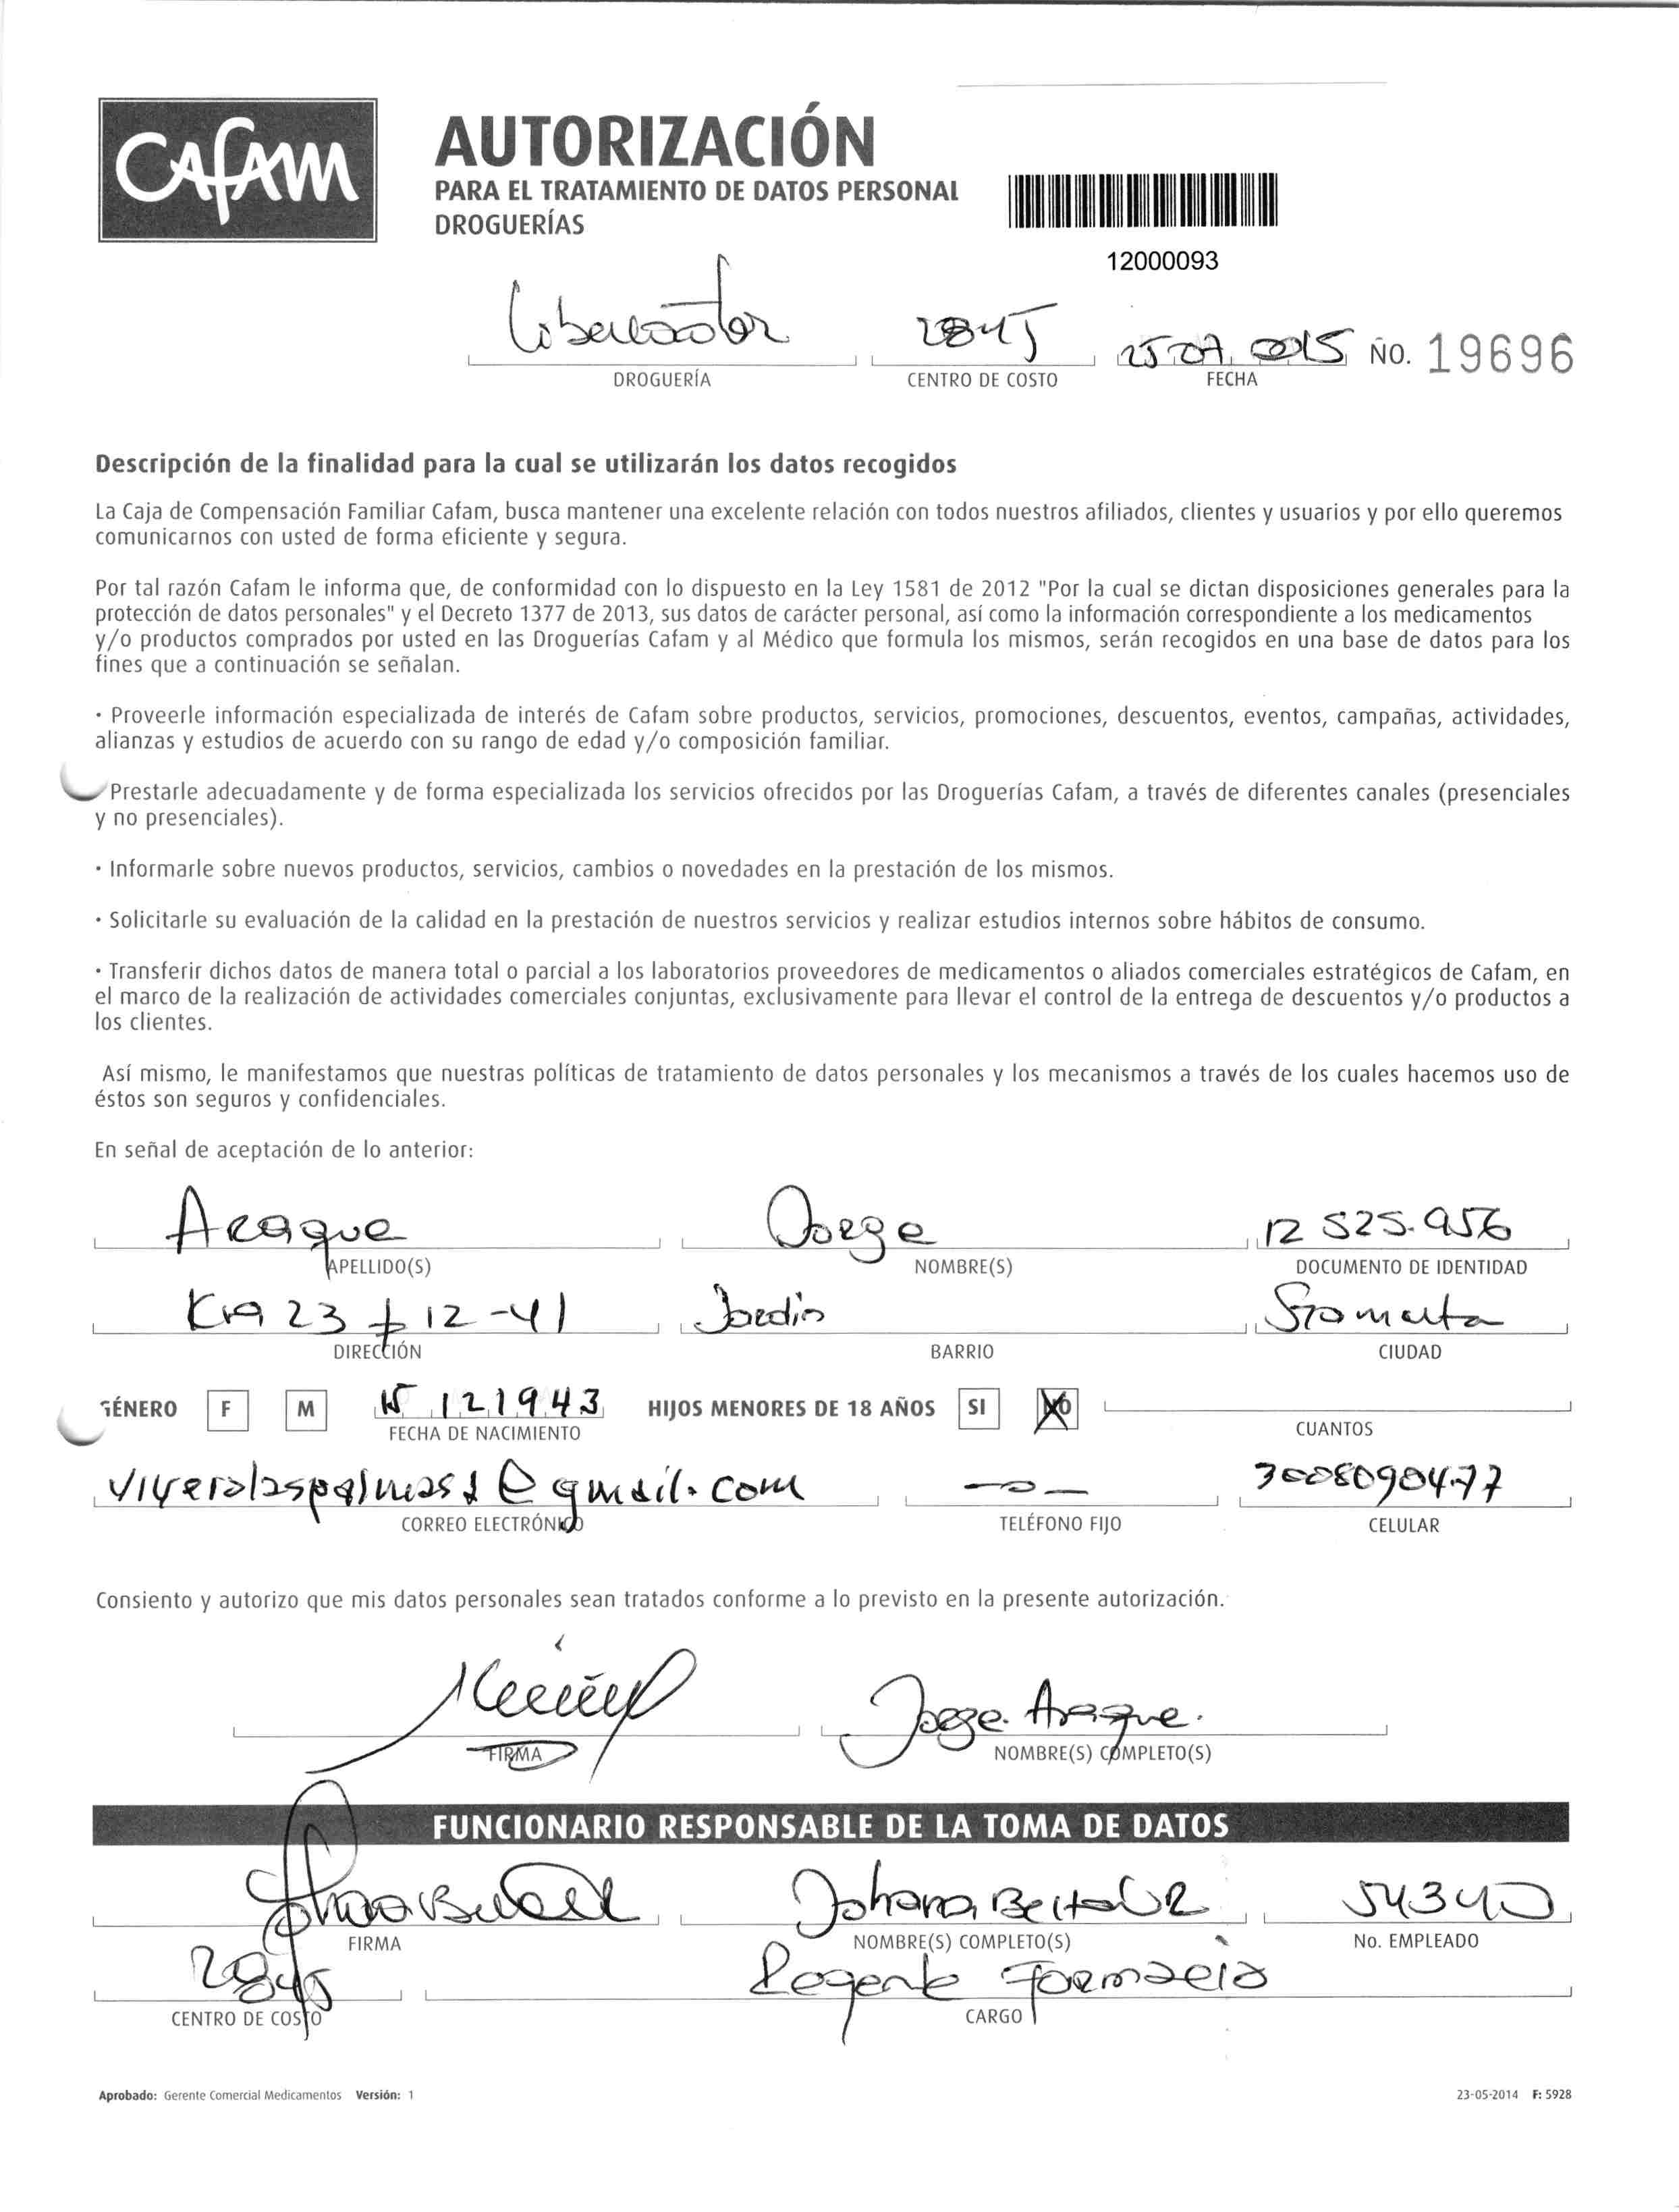 CAFAM
AUTORIZACIÓN
PARA EL TRATAMIENTO DE DATOS PERSONAL
DROGUERÍAS
12000093
Libertador 2845 25 07 2015 No. 19696
DROGUERÍA CENTRO DE COSTO FECHA
Descripción de la finalidad para la cual se utilizarán los datos recogidos
La Caja de Compensación Familiar Cafam, busca mantener una excelente relación con todos nuestros afiliados, clientes y usuarios y por ello queremos
comunicarnos con usted de forma eficiente y segura.
Por tal razón Cafam le informa que, de conformidad con lo dispuesto en la Ley 1581 de 2012 "Por la cual se dictan disposiciones generales para la
protección de datos personales" y el Decreto 1377 de 2013, sus datos de carácter personal, así como la información correspondiente a los medicamentos
y/o productos comprados por usted en las Droguerías Cafam y al Médico que formula los mismos, serán recogidos en una base de datos para los
fines que a continuación se señalan.
· Proveerle información especializada de interés de Cafam sobre productos, servicios, promociones, descuentos, eventos, campañas, actividades,
alianzas y estudios de acuerdo con su rango de edad y/o composición familiar.
Prestarle adecuadamente y de forma especializada los servicios ofrecidos por las Droguerías Cafam, a través de diferentes canales (presenciales
y no presenciales).
· Informarle sobre nuevos productos, servicios, cambios o novedades en la prestación de los mismos.
· Solicitarle su evaluación de la calidad en la prestación de nuestros servicios y realizar estudios internos sobre hábitos de consumo.
· Transferir dichos datos de manera total o parcial a los laboratorios proveedores de medicamentos o aliados comerciales estratégicos de Cafam, en
el marco de la realización de actividades comerciales conjuntas, exclusivamente para llevar el control de la entrega de descuentos y/o productos a
los clientes.
Así mismo, le manifestamos que nuestras políticas de tratamiento de datos personales y los mecanismos a través de los cuales hacemos uso de
éstos son seguros y confidenciales.
En señal de aceptación de lo anterior:
Araque Jorge 12 525.956
APELLIDO(S) NOMBRE(S) DOCUMENTO DE IDENTIDAD
Kra 23 # 12-41 Jardin Sta marta
DIRECCIÓN BARRIO CIUDAD
GÉNERO F M 15 12 1943 HIJOS MENORES DE 18 AÑOS SI NO
FECHA DE NACIMIENTO CUANTOS
viverolaspalmas1@gmail.com —o— 3008090477
CORREO ELECTRÓNICO TELÉFONO FIJO CELULAR
Consiento y autorizo que mis datos personales sean tratados conforme a lo previsto en la presente autorización.
Jorge Araque.
FIRMA NOMBRE(S) COMPLETO(S)
FUNCIONARIO RESPONSABLE DE LA TOMA DE DATOS
Johana 54340
FIRMA NOMBRE(S) COMPLETO(S) No. EMPLEADO
2845 Regente Farmacia
CENTRO DE COSTO CARGO
Aprobado: Gerente Comercial Medicamentos Versión: 1 23-05-2014 F: 5928